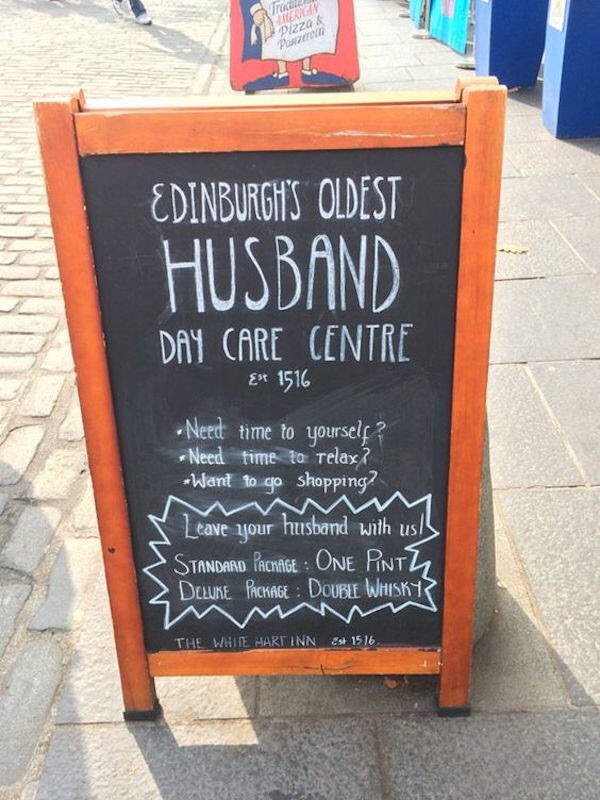 AMERICAN
Pizza &
Panzerotti
EDINBURGH'S OLDEST
HUSBAND
DAY CARE CENTRE
Est 1516
• Need time to yourself?
• Need time to relax?
• Want to go shopping?
Leave your husband with us!
STANDARD PACKAGE : ONE PINT
DELUXE PACKAGE : DOUBLE WHISKY
THE WHITE HART INN Est 1516.